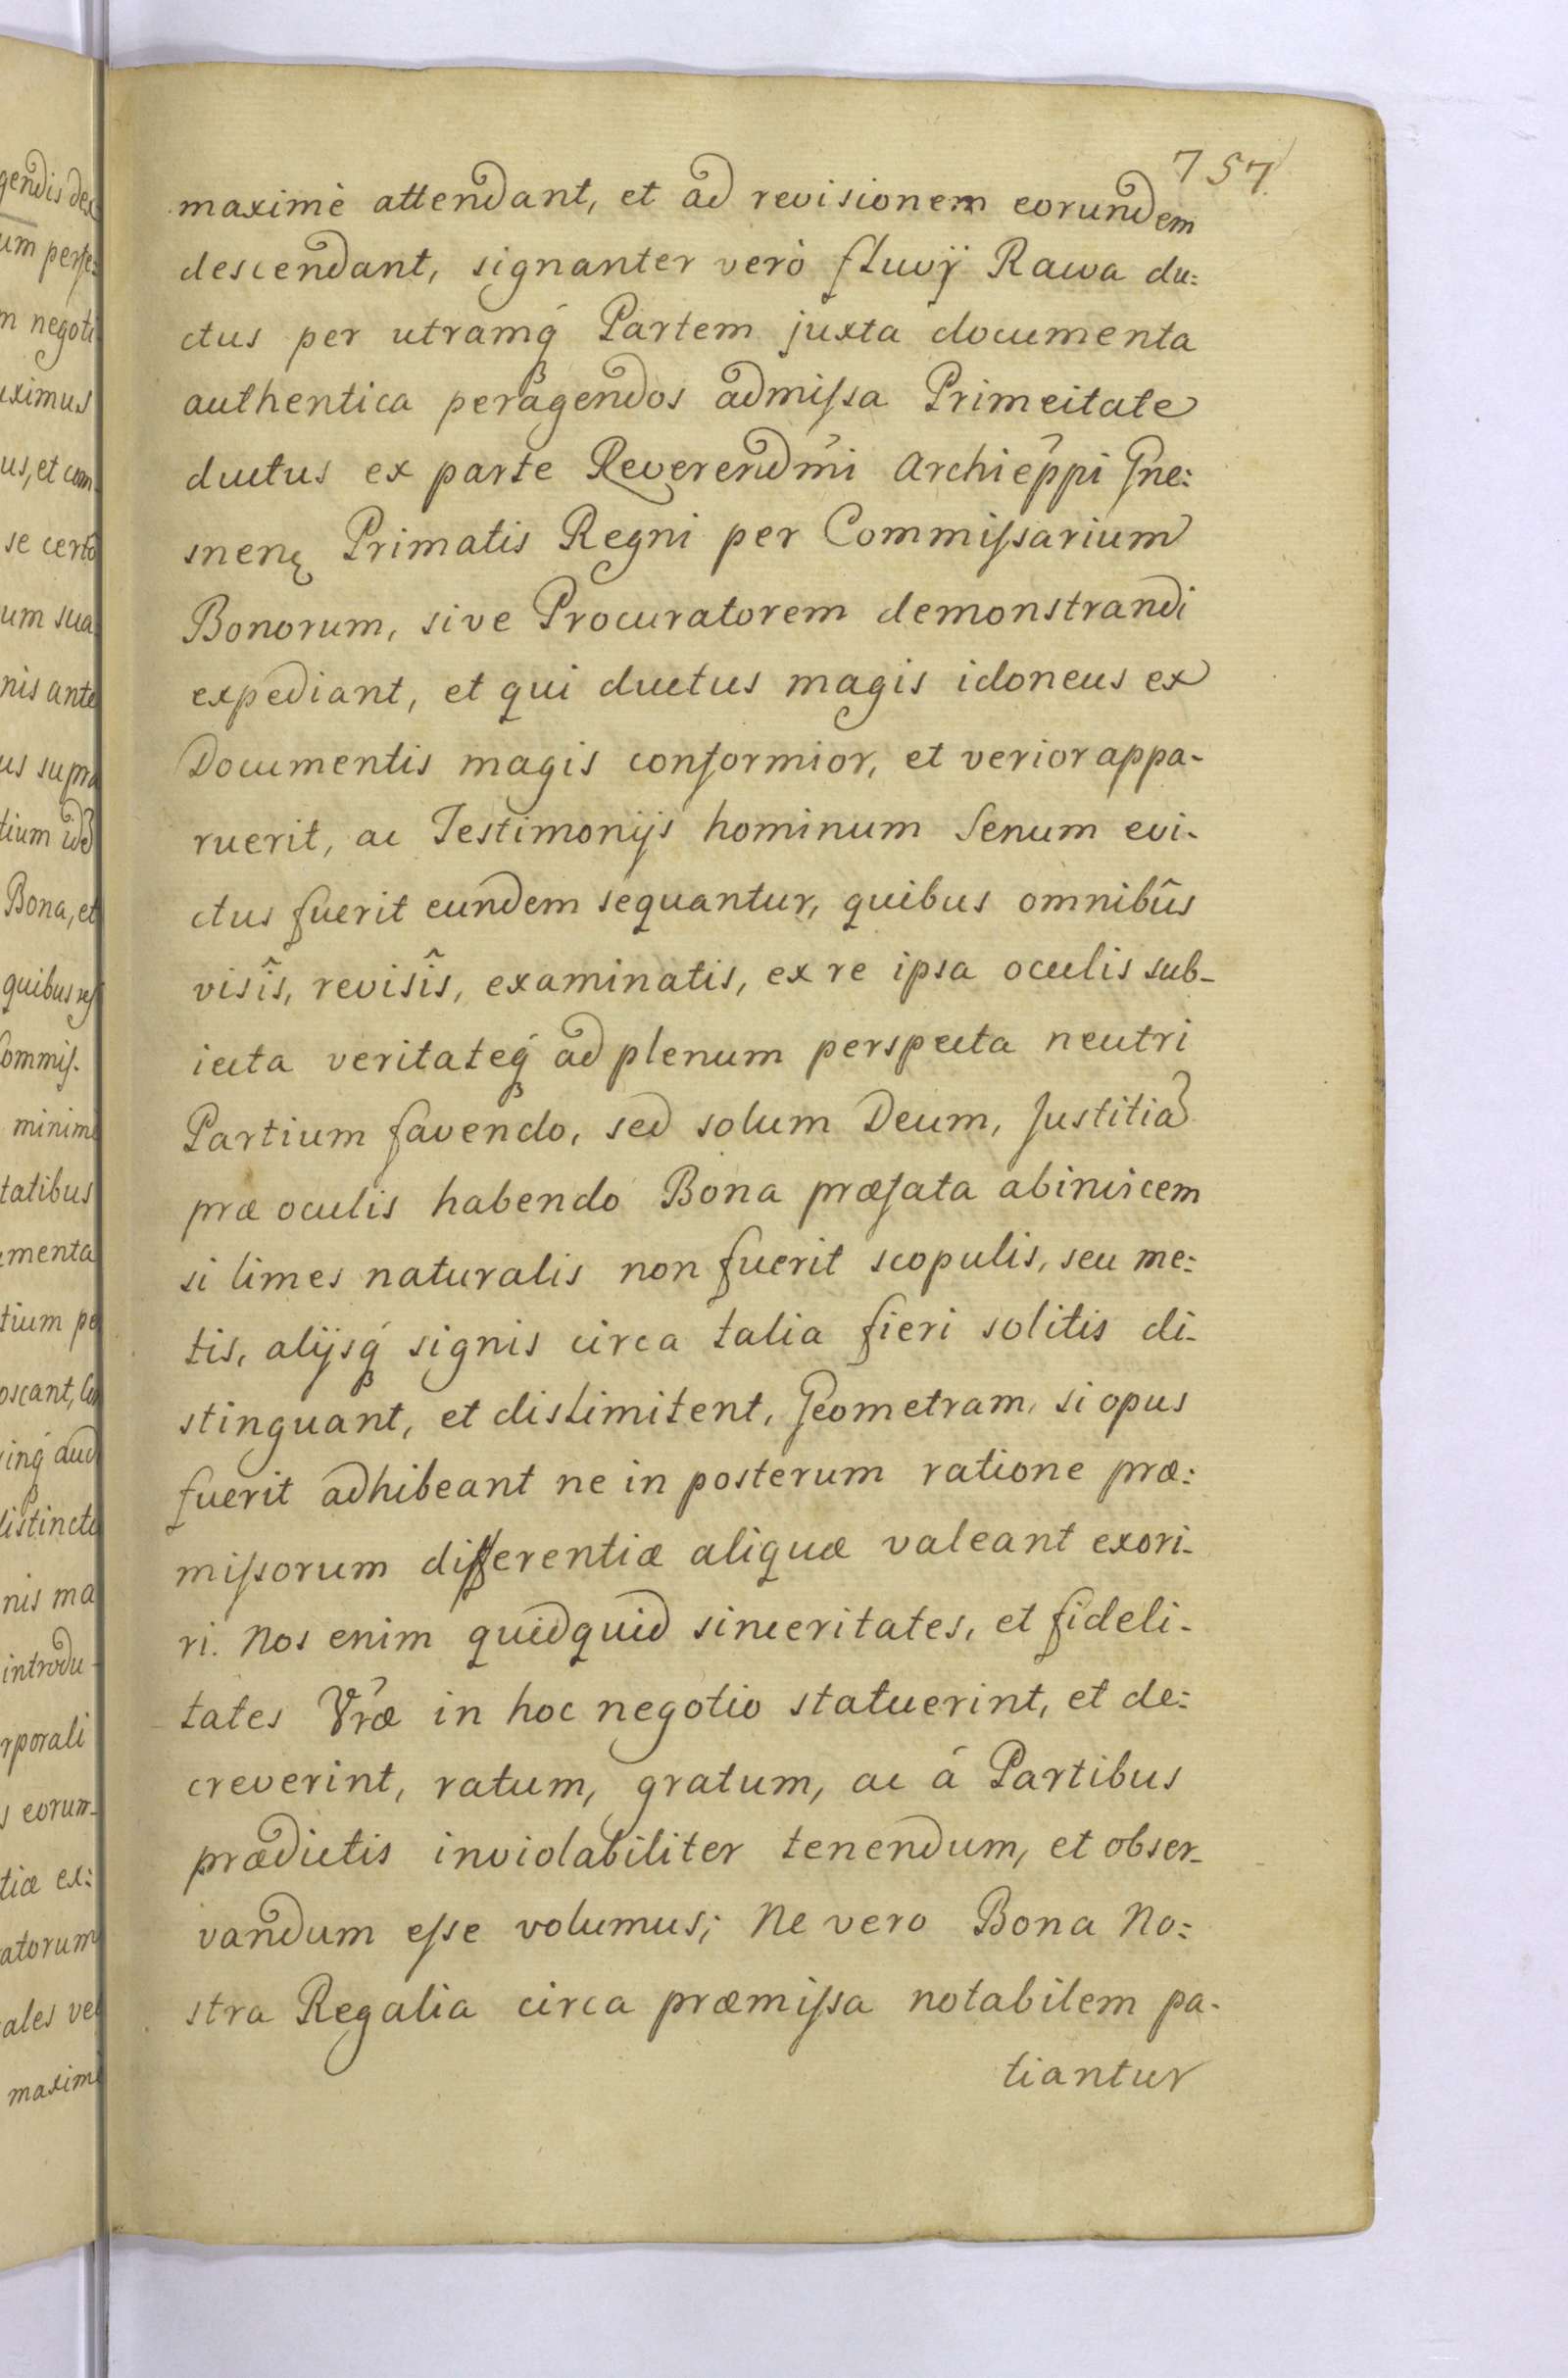 757.
maximè attendant, et ad revisionem eorundem
descendant, signanter verò fluvÿ Rawa du:
ctus per utramq́ Partem juxta documenta
authentica peragendos admissa Primeitate
ductus ex parte Reverendm̃i Archiep̃pi Gne:
snenę Primatis Regni per Commissarium
Bonorum, sive Procuratorem demonstrandi
expediant, et qui ductus magis idoneus ex
Documentis magis conformior, et verior appa-
ruerit, ac Testimonijs hominum Senum evi-
ctus fuerit eundem sequantur, quibus omnibûs
visîs, revisîs, examinatis, ex re ipsa oculis sub-
iecta veritateq́ ad plenum perspecta neutri
Partium favendo, sed solum Deum, Justitiã
præ oculis habendo Bona præfata abinvicem
si limes naturalis non fuerit scopulis, seu me:
tis, alijsq́ signis circa talia fieri solitis di-
stinguant, et dislimitent, Geometram, si opus
fuerit adhibeant ne in posterum ratione præ:
missorum differentiæ aliquæ valeant exori-
ri. Nos enim quidquid sinceritates, et fideli-
tates Vr̃æ in hoc negotio statuerint, et de:
creverint, ratum, gratum, ac á Partibus
prædictis inviolabiliter tenendum, et obser-
vandum esse volumus; Ne vero Bona No:
stra Regalia circa præmissa notabilem pa-
tiantur